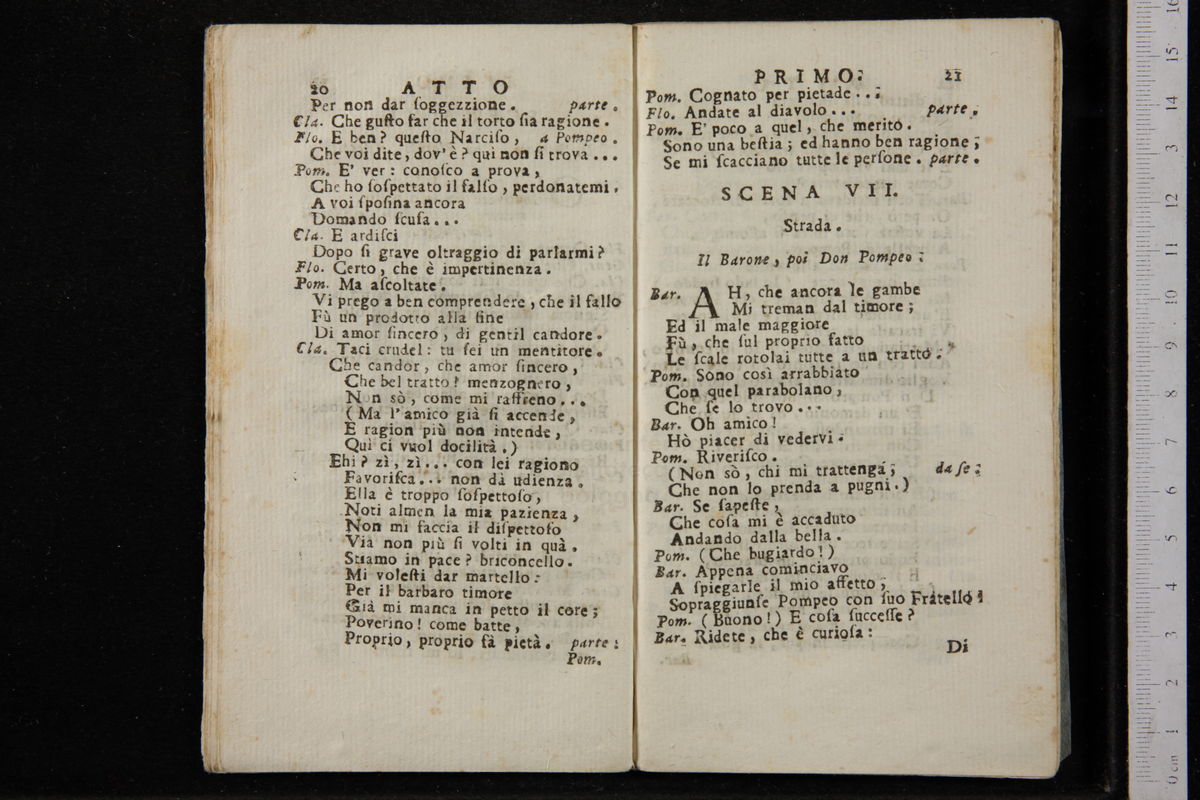 20 ATTO
Per non dar ſoggezzione. parte.
Cla. Che guſto far che il torto ſia ragione.
Flo. E ben? queſto Narciſo, a Pompeo.
Che voi dite, dov'è? qui non ſi trova...
Pom. E' ver: conoſco a prova,
Che ho ſoſpettato il falſo, perdonatemi.
A voi ſpoſina ancora
Domando ſcuſa...
Cla. E ardiſci
Dopo ſi grave oltraggio di parlarmi?
Flo. Certo, che è impertinenza.
Pom. Ma aſcoltate.
Vi prego a ben comprendere, che il fallo
Fù un prodotto alla fine
Di amor ſincero, di gentil candore.
Cla. Taci crudel: tu ſei un mentitore.
Che candor, che amor ſincero,
Che bel tratto! menzognero,
Non sò, come mi raffreno...
(Ma l'amico già ſi accende,
E ragion più non intende,
Qui ci vuol docilità.)
Ehi? zì, zì... con lei ragiono
Favoriſca... non dà udienza.
Ella è troppo ſoſpettoſo,
Noti almen la mia pazienza,
Non mi faccia il diſpettoſo
Via non più ſi volti in quà.
Stiamo in pace? briconcello.
Mi voleſti dar martello:
Per il barbaro timore
Già mi manca in petto il core;
Poverino! come batte,
Proprio, proprio fà pietà. parte:
Pom.
PRIMO: 21
Pom. Cognato per pietade...
Flo. Andate al diavolo... parte.
Pom. E' poco a quel, che merito.
Sono una beſtia; ed hanno ben ragione;
Se mi ſcacciano tutte le perſone. parte.
SCENA VII.
Strada.
Il Barone, poi Don Pompeo:
Bar. AH, che ancora le gambe
Mi treman dal timore;
Ed il male maggiore
Fù, che ſul proprio fatto
Le ſcale rotolai tutte a un tratto.
Pom. Sono così arrabbiato
Con quel parabolano,
Che ſe lo trovo...
Bar. Oh amico!
Hò piacer di vedervi.
Pom. Riveriſco.
(Non sò, chi mi trattenga; da ſe:
Che non lo prenda a pugni.)
Bar. Se ſapeſte,
Che coſa mi è accaduto
Andando dalla bella.
Pom. (Che bugiardo!)
Bar. Appena cominciavo
A ſpiegarle il mio affetto;
Sopraggiunſe Pompeo con ſuo Fratello!
Pom. (Buono!) E coſa ſucceſſe?
Bar. Ridete, che è curioſa:
Di
0 cm 1 2 3 4 5 6 7 8 9 10 11 12 13 14 15 16